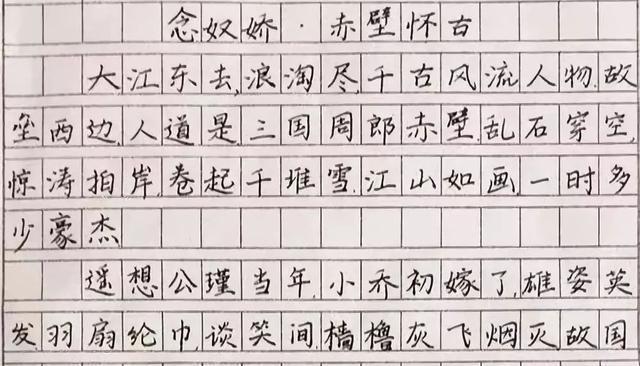 念奴娇·赤壁怀古
大江东去,浪淘尽,千古风流人物.故
垒西边,人道是,三国周郎赤壁.乱石穿空,
惊涛拍岸,卷起千堆雪.江山如画,一时多
少豪杰
遥想公瑾当年,小乔初嫁了,雄姿英
发.羽扇纶巾,谈笑间,樯橹灰飞烟灭.故国